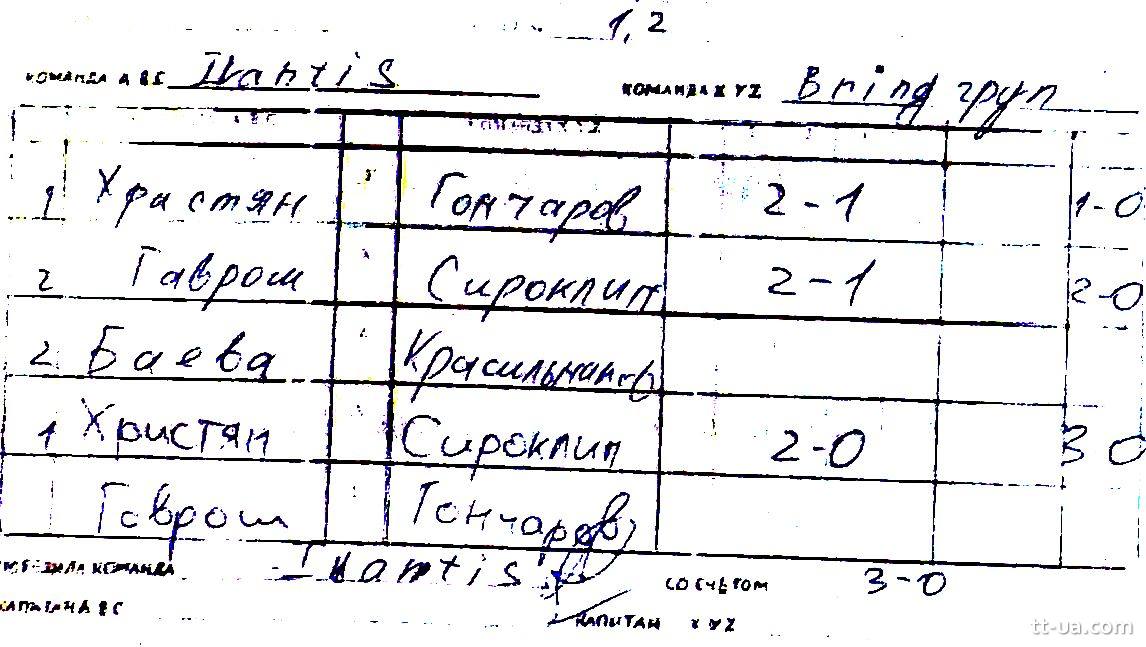 1,2
КОМАНДА А В С Ikantis КОМАНДА X YZ Bring груп
А В С КОМАНДА X Y Z
1 Христян Гончаров 2-1 1-0
2 Гаврош Сироклин 2-1 2-0
2 Баева Красильников
1 Христян Сироклин 2-0 3 0
Гаврош Гончаров
ПОБЕДИЛА КОМАНДА Ikantis СО СЧЕТОМ 3-0
КАПИТАН А В С КАПИТАН X YZ
tt-ua.com